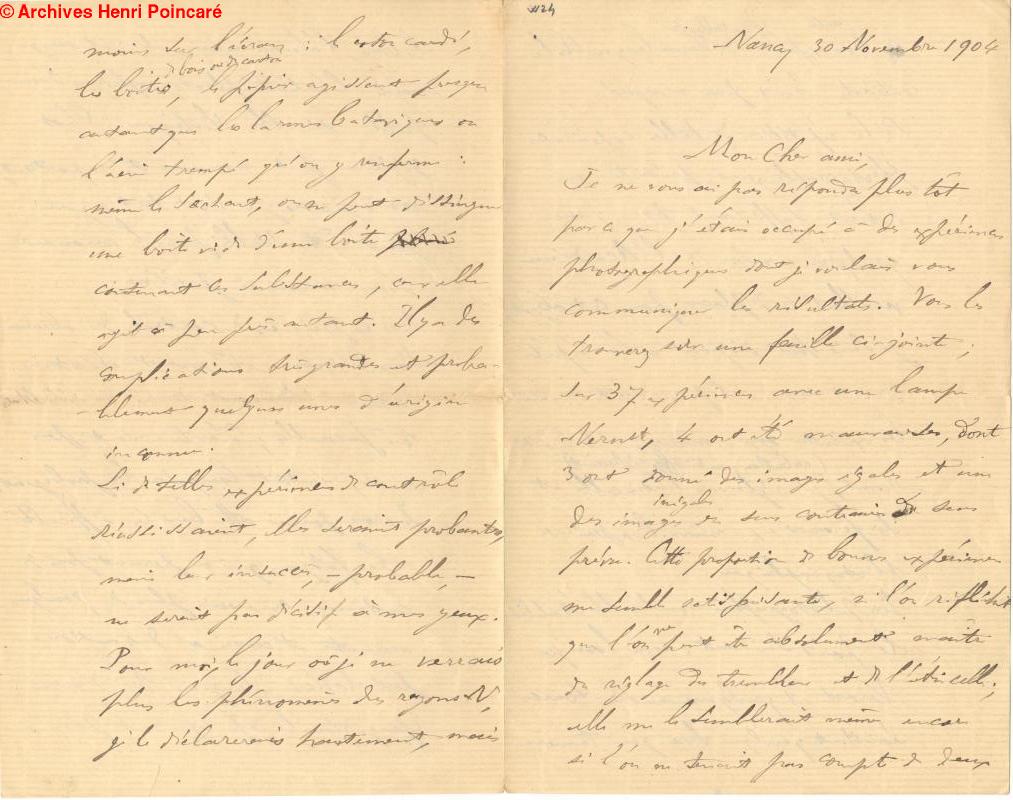 © Archives Henri Poincaré
Nancy 30 Novembre 1904
Mon Cher ami,
Je ne vous ai pas répondu plus tôt
parce que j'étais occupé à des expériences
photographiques dont je voulais vous
communiquer les résultats. Vous les
trouverez sur une feuille conjointe ;
sur 37 expériences avec une lampe
Nernst, 4 ont été mauvaises, dont
3 ont donné des images égales et une
des images inégales en sens contraire du sens
prévu. Cette proportion de bonnes expériences
me semble satisfaisante, si l'on réfléchit
que l'on ne peut être absolument maître
du réglage des trembleur et de l'étincelle ;
elle me le semblerait même encore
si l'on ne tenait pas compte de deux
moins sur l'écran :
les boîtes de bois ou de carton, le papier agissent presque
autant que les larmes bataviques ou
l'acier trempé qu'on y renferme :
même le sachant, on ne peut distinguer
une boîte vide d'une boîte
contenant ces substances, car elle
agit à peu près autant. Il y a des
complications très grandes et proba-
-blement quelques unes d'origine
inconnue.
Si de telles expériences de contrôle
réussissaient, elles seraient probantes,
mais leur insuccès, – probable, –
ne serait pas décisif à mes yeux.
Pour moi, le jour où je ne verrais
plus les phénomènes des rayons N,
je le déclarerais hautement, mais